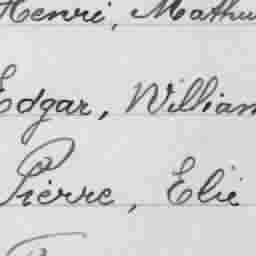 Henri, Mathu
Edgar, William
Pierre, Elie